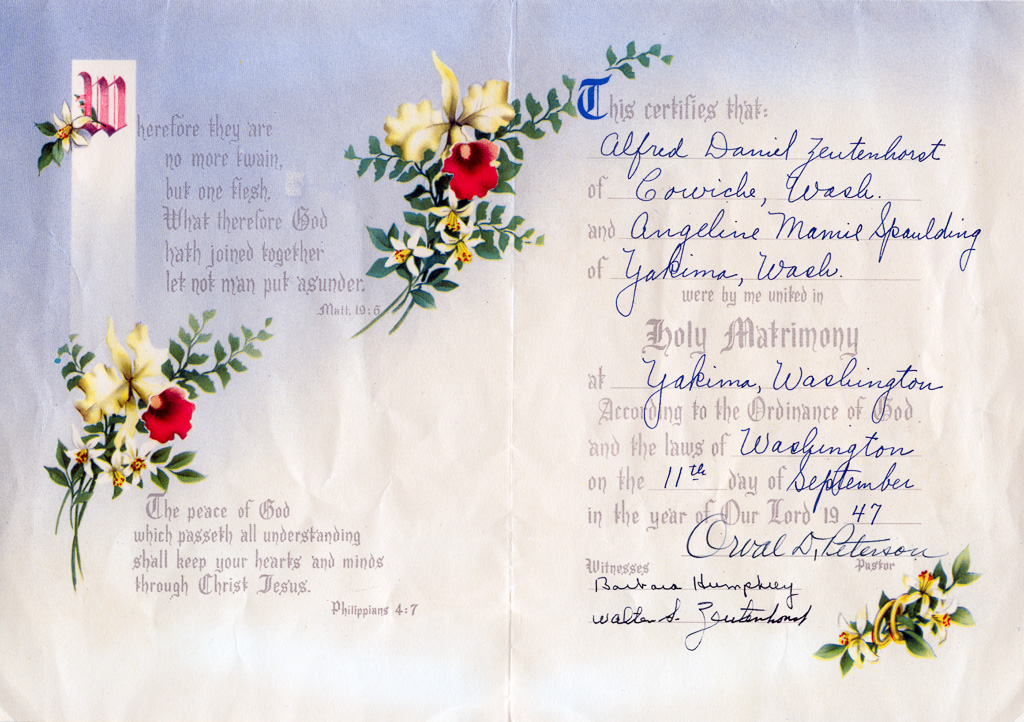 Wherefore they are
no more twain,
but one flesh.
What therefore God
hath joined together
let not man put asunder.
Matt. 19:6
The peace of God
which passeth all understanding
shall keep your hearts and minds
through Christ Jesus.
Philippians 4:7
This certifies that:
Alfred Daniel Zeutenhorst
of Cowiche, Wash.
and Angeline Mamie Spaulding
of Yakima, Wash.
were by me united in
Holy Matrimony
at Yakima, Washington
According to the Ordinance of God
and the laws of Washington
on the 11th day of September
in the year of Our Lord 19 47
Orval D. Peterson
Witnesses
Pastor
Barbara Humphrey
Walter S. Zeutenhorst